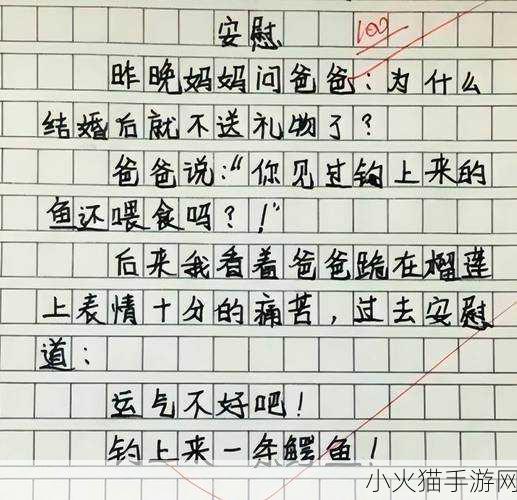 安慰 100
昨晚妈妈问爸爸：为什么
结婚后就不送礼物了？
爸爸说：“你见过钩上来的
鱼还喂食吗？！”
后来我看着爸爸跪在榴莲
上表情十分的痛苦，过去安慰
道：
运气不好吧！
钓上来一条鳄鱼！
小火猫手游网